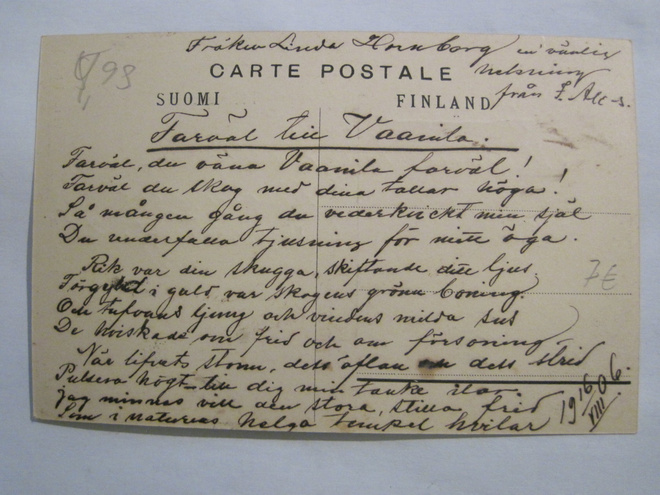 Fröken Linda Hornborg en vänlig
helsning
från E. Ale-s.
98
CARTE POSTALE
SUOMI FINLAND
Farväl till Vaanila.
Farväl, du väna Vaanila farväl!
Farväl du skog med dina tallar höga!
Så mången gång du vederkvickt min själ
Du underfulla tjusning för mitt öga.
Rik var din skugga, skiftande ditt ljus.
Förgyld i guld var skogens gröna boning.
Och tufvans ljung och vindens milda sus
De hviskade om frid och om försoning
7E
När lifvets storm, dess äflan om dess strid
Pulsera högt till dig min tanke ilar.
jag minnes väll den stora, stilla frid
Som i naturens helga tempel hvilar
19 16/VIII 06.